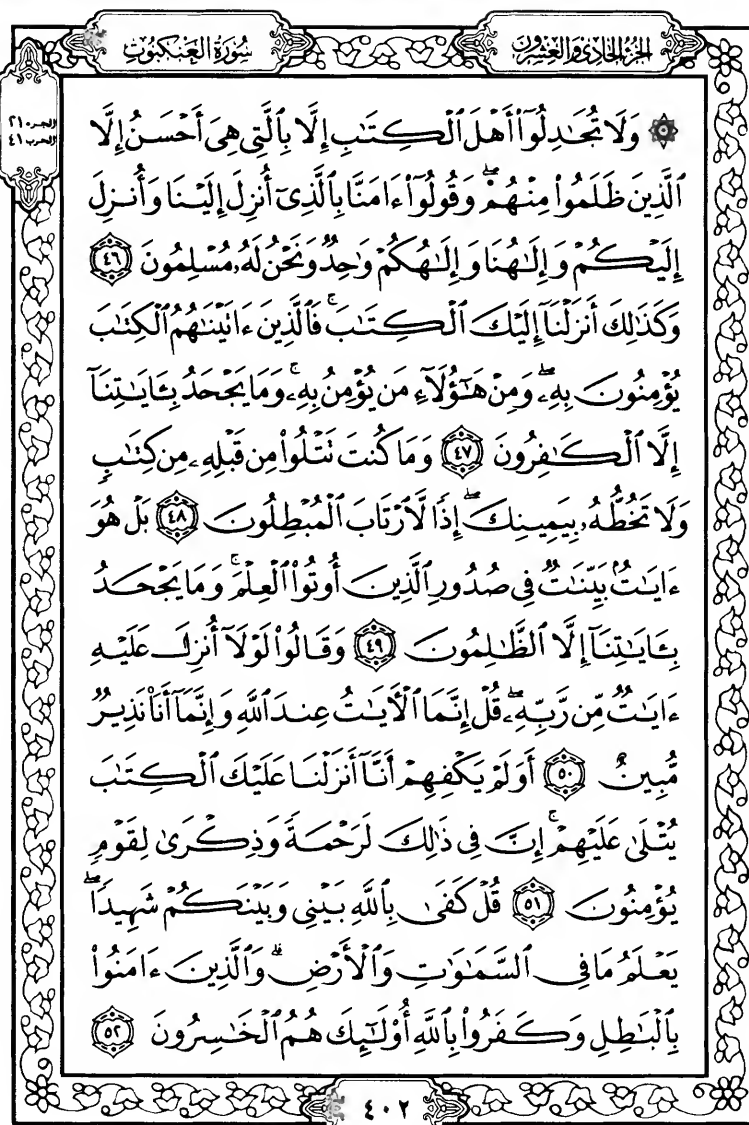 الجزء الحادي والعشرون
سُورَةُ العَنكبُوتِ
الجزء ٢١
الحزب ٤١
۞ وَلَا تُجَٰدِلُوٓا۟ أَهْلَ ٱلْكِتَٰبِ إِلَّا بِٱلَّتِى هِىَ أَحْسَنُ إِلَّا
ٱلَّذِينَ ظَلَمُوا۟ مِنْهُمْ ۖ وَقُولُوٓا۟ ءَامَنَّا بِٱلَّذِىٓ أُنزِلَ إِلَيْنَا وَأُنزِلَ
إِلَيْكُمْ وَإِلَٰهُنَا وَإِلَٰهُكُمْ وَٰحِدٌ وَنَحْنُ لَهُۥ مُسْلِمُونَ ٤٦
وَكَذَٰلِكَ أَنزَلْنَآ إِلَيْكَ ٱلْكِتَٰبَ ۚ فَٱلَّذِينَ ءَاتَيْنَٰهُمُ ٱلْكِتَٰبَ
يُؤْمِنُونَ بِهِۦ ۖ وَمِنْ هَٰٓؤُلَآءِ مَن يُؤْمِنُ بِهِۦ ۚ وَمَا يَجْحَدُ بِـَٔايَٰتِنَآ
إِلَّا ٱلْكَٰفِرُونَ ٤٧ وَمَا كُنتَ تَتْلُوا۟ مِن قَبْلِهِۦ مِن كِتَٰبٍ
وَلَا تَخُطُّهُۥ بِيَمِينِكَ ۖ إِذًا لَّٱرْتَابَ ٱلْمُبْطِلُونَ ٤٨ بَلْ هُوَ
ءَايَٰتٌۢ بَيِّنَٰتٌ فِى صُدُورِ ٱلَّذِينَ أُوتُوا۟ ٱلْعِلْمَ ۚ وَمَا يَجْحَدُ
بِـَٔايَٰتِنَآ إِلَّا ٱلظَّٰلِمُونَ ٤٩ وَقَالُوا۟ لَوْلَآ أُنزِلَ عَلَيْهِ
ءَايَٰتٌ مِّن رَّبِّهِۦ ۖ قُلْ إِنَّمَا ٱلْءَايَٰتُ عِندَ ٱللَّهِ وَإِنَّمَآ أَنَا۠ نَذِيرٌ
مُّبِينٌ ٥٠ أَوَلَمْ يَكْفِهِمْ أَنَّآ أَنزَلْنَا عَلَيْكَ ٱلْكِتَٰبَ
يُتْلَىٰ عَلَيْهِمْ ۚ إِنَّ فِى ذَٰلِكَ لَرَحْمَةً وَذِكْرَىٰ لِقَوْمٍ
يُؤْمِنُونَ ٥١ قُلْ كَفَىٰ بِٱللَّهِ بَيْنِى وَبَيْنَكُمْ شَهِيدًا ۖ
يَعْلَمُ مَا فِى ٱلسَّمَٰوَٰتِ وَٱلْأَرْضِ ۗ وَٱلَّذِينَ ءَامَنُوا۟
بِٱلْبَٰطِلِ وَكَفَرُوا۟ بِٱللَّهِ أُو۟لَٰٓئِكَ هُمُ ٱلْخَٰسِرُونَ ٥٢
٤٠٢